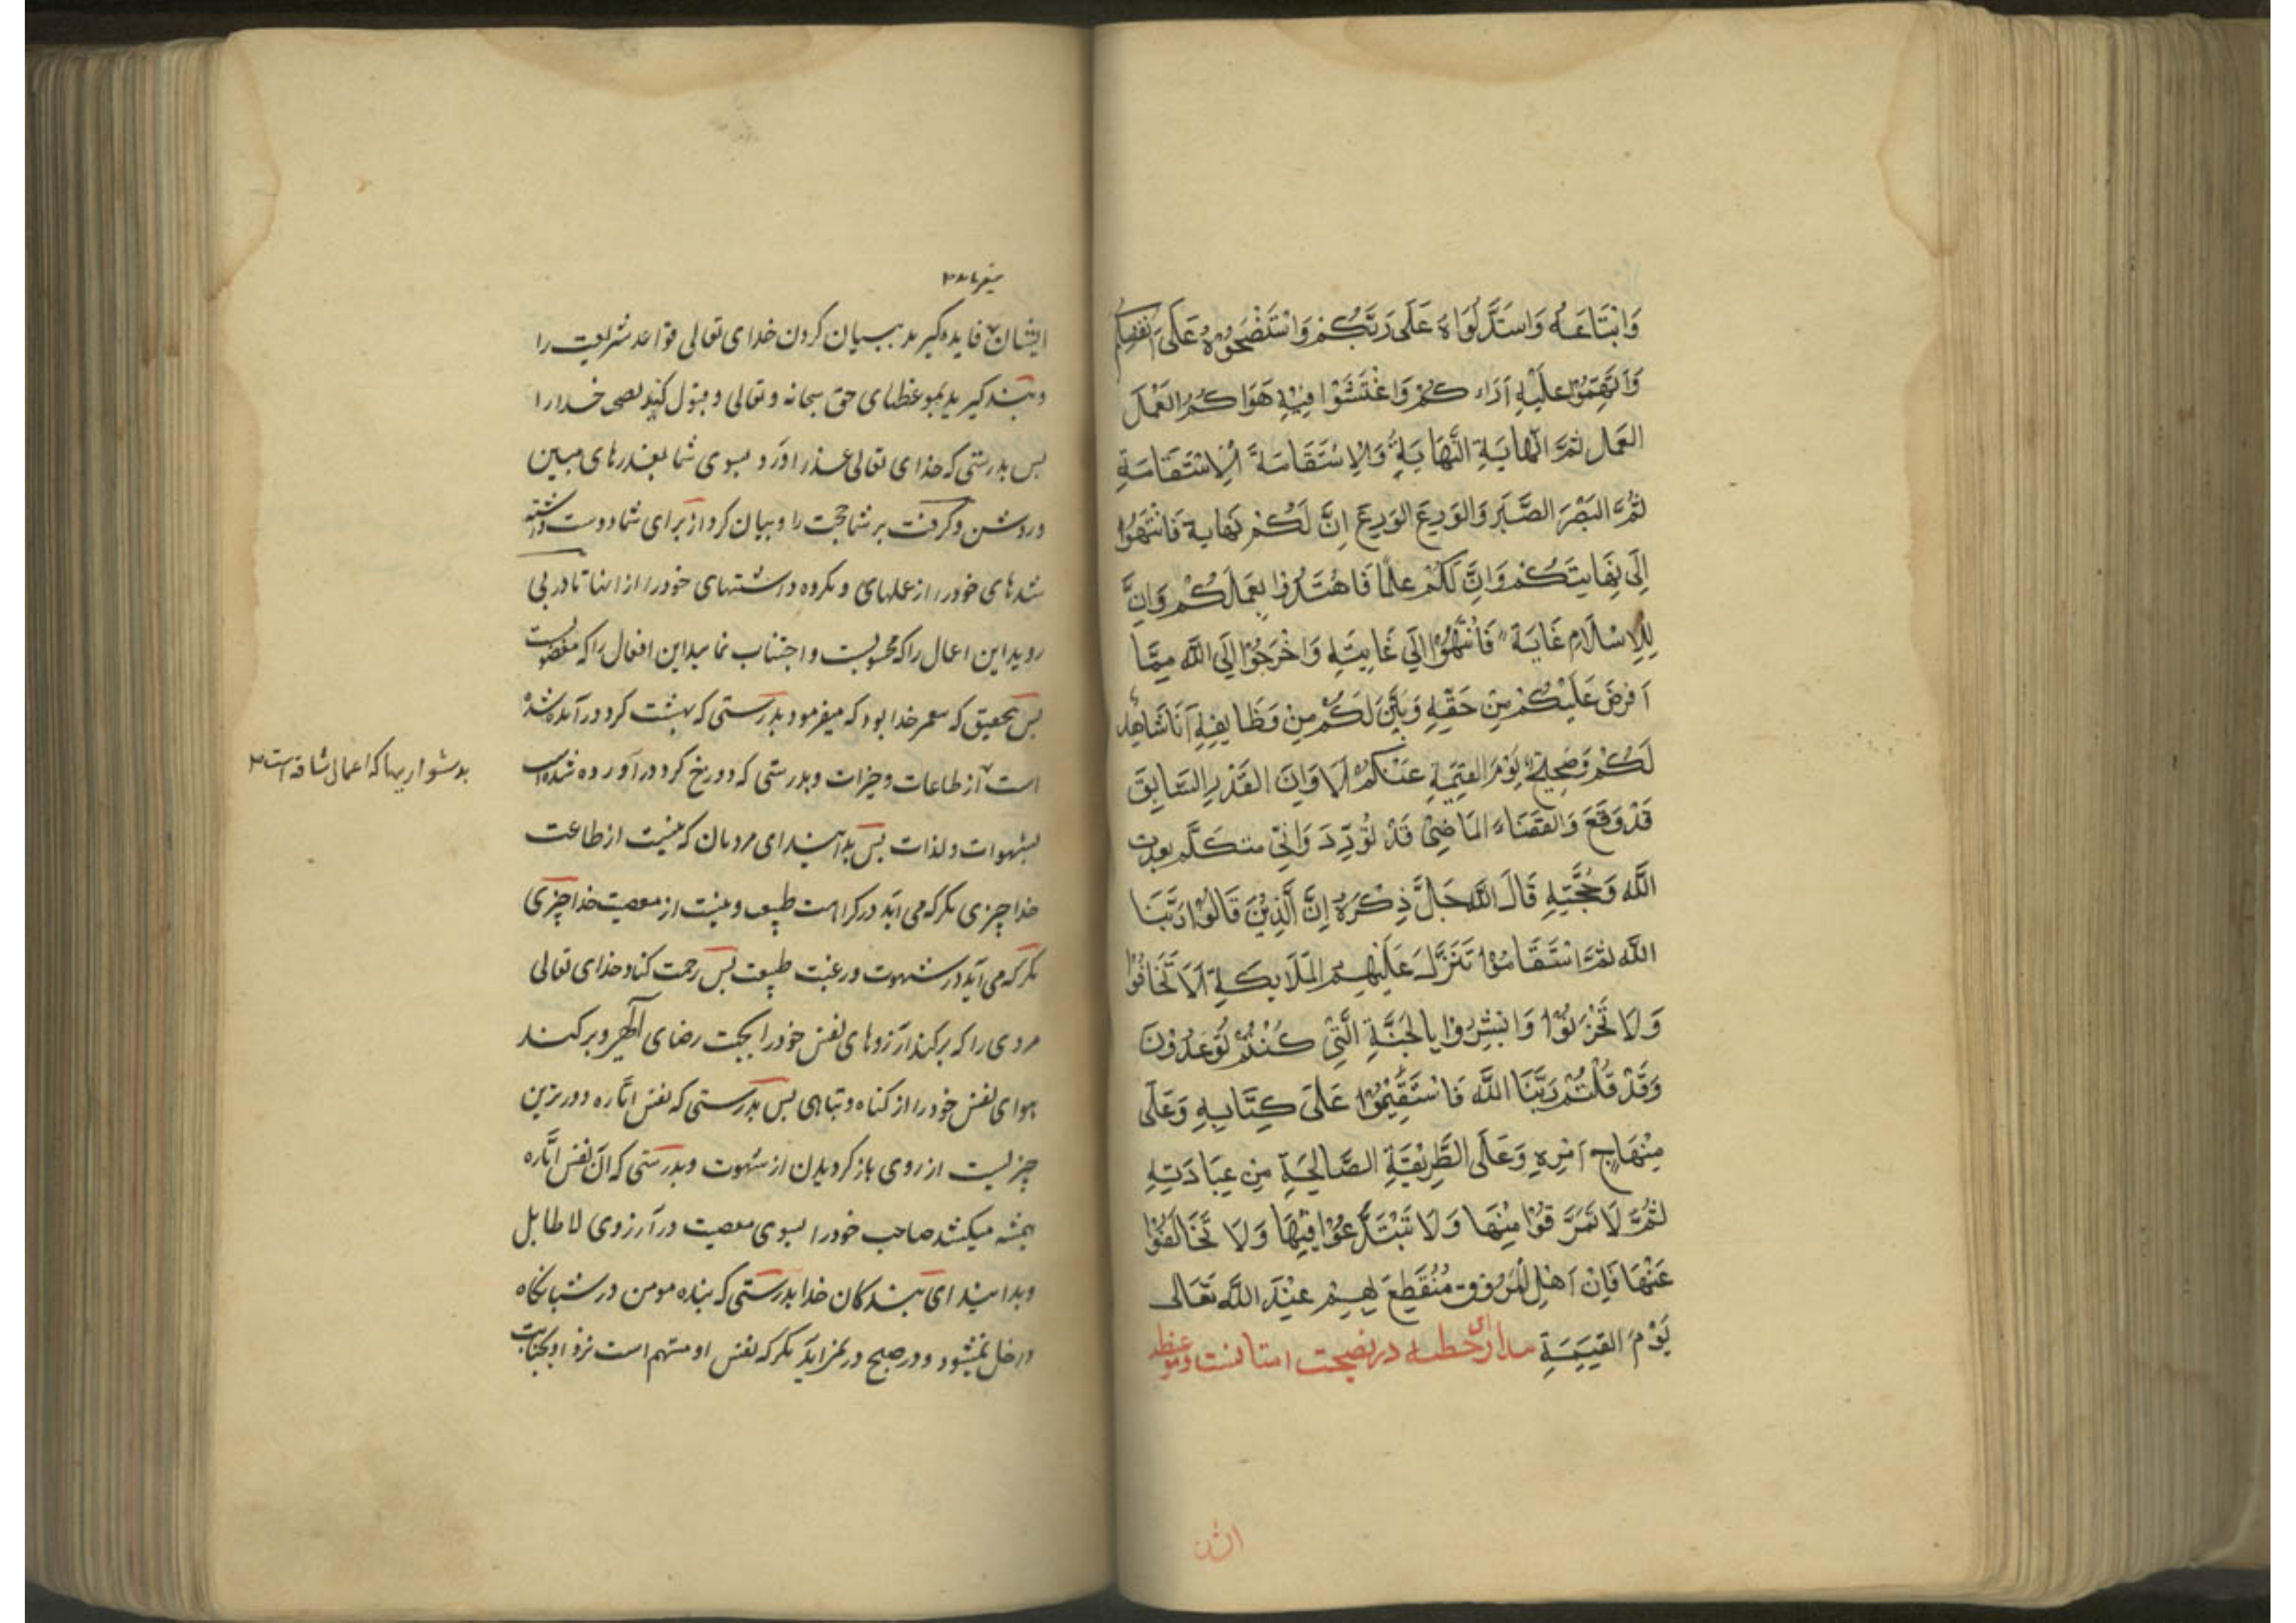 وَاتْبَاعَهُ وَاسْتَدِلُّوَاهُ عَلَى رَبِّكُمْ وَاسْتَنْصِحُوْهُ عَلَى اَنْفُسِكُم
وَاتَّهِمُوْا عَلَيْهِ آرَاءَ كُمْ وَاغْتَشُّوْا فِيْهِ هَوَا كُمُ الْعَمَلَ
العَمَل ثُمَّ النِّهَايَةِ النَّهَايَةِ وَالِاسْتَقَامَةَ الْاِسْتَقَامَةِ
ثُمَّ الصَّبْرَ الصَّبَر وَالوَرِعَ الوَرِعَ اِنَّ لَكُمْ نِهَاية فَانْتَهُوْا
اِلَى نِهَايتَكُمْ وَاِنَّ لَكُمْ عِلْمًا فَاهْتَدُوْا بِعَمَلَكُمْ وَاِنَّ
لِلِاسْلَامِ غَايَة فَانْتَهُوْا اِلَي غَايَتِهِ وَاخْرَجُوْا اِلَي اللَّه مِمَّا
اَفرضَ عَلَيْكُمْ مِنْ حَقِّهِ وَبَيَّنَ لَكُمْ مِنْ وَظَايفِهِ اَنَا شَاهِدٌ
لَكُمْ وَحَجِيجٌ يَوْمَ القِيَمَةِ عَنْكُمْ اَلَا وَاِنَ القَدْرِ السَّابِقَ
قَدْ وَقَعَ وَالقَضَاءَ المَاضِىْ قَدْ تُوَرَّدَ وَاِنِّي متكَلَّم بعدت
اللَّه وَحُجَّتِهِ قَالَ اللَّه جَلَّ ذِكْرَهُ اِنَّ الَّذِيْنَ قَالُوْا رَبَّنَا
اللَّه ثُمَّ اسْتَقَامُوْا تَتَنَزَّلَ عَلَيْهِمُ المَلَايكَةِ اَلَا تَخَافُوْا
وَلَا تَحْزَنُوْا وَابْشِرُوْا بِالجَنَّةِ الَّتِىْ كُنْتُمْ تُوعَدُوْنَ
وَقَدْ قُلْتُمْ رَبَّنَا اللَّه فَاسْتَقِيْمُوْا عَلَى كِتَابِهِ وَعَلَى
مِنْهَاجِ اَمْرِهِ وَعَلَى الطَّرِيْقَةِ الصَّالِحَةِ مِن عِبَادَتِهِ
ثُمَّ لَا تَمَرَّقُوْا مِنْهَا وَلَا تَبْتَدَّعُوْا فِيْهَا وَلَا تَخَالَفُوْا
عَنْهَا فَاِنْ اَهْلِ المُرُوْقِ مُنْقَطِعَ بِهِمْ عِنْدَ اللَّه تَعَالى
يَوْمَ القِيَمَةِ خطبه در نصيحت امتانست وموعظه
ميفرمايد
ايشان فايده گيريد ببيان كردن خداى تعالى قواعد شريعت را
وپند گيريد بموعظهاى حق سبحانه وتعالى وقبول كنيد نصح خدارا
پس بدرستى كه خداى تعالى عذر اورد بسوى شما بعذرهاى مبين
وروشن وگرفت بر شما حجت را وبيان كرد از براى شما دوست داشته
شدهاى خودرا از عملهاى ومكروه داشتهاى خودرا از انها تا در پى
رويد اين اعمال را كه محبوبست و اجتناب نماييد اين افعال را كه مبغضوبست
پس بتحقيق كه پيغمبر خدا بود كه ميفرمود بدرستى كه بهشت كرد در آمده شده
است از طاعات وخيرات وبدرستى كه دوزخ كرد در آورده شده است
بشهوات ولذات پس بدانيد اى مردمان كه نيست از طاعت
خدا چيزى مگر كه مى ايد در كراهت طبيعت ونيست از معصيت خدا چيزى
مگر كه مى آيد در شهوت ورغبت طبيعت پس رحمت كناد خداى تعالى
مردى را كه بركند از آرزوهاى نفس خودرا بجهت رضاى الهى وبركند
هواى نفس خودرا از گناه وتباهى پس بدرستى كه نفس اماره دورترين
چيزيست از روى باز گرديدن از شهوت وبدرستى كه آن نفس اماره
هميشه ميكشد صاحب خودرا بسوى معصيت در آرزوى لا طايل
وبدانيد اى بندگان خدا بدرستى كه بنده مومن در شبانگاه
داخل نميشود ودر صبح در نمى ايد مگر كه نفس او متهم است نزد او بخيانت
بدشواريها كه اعمال شاقه است